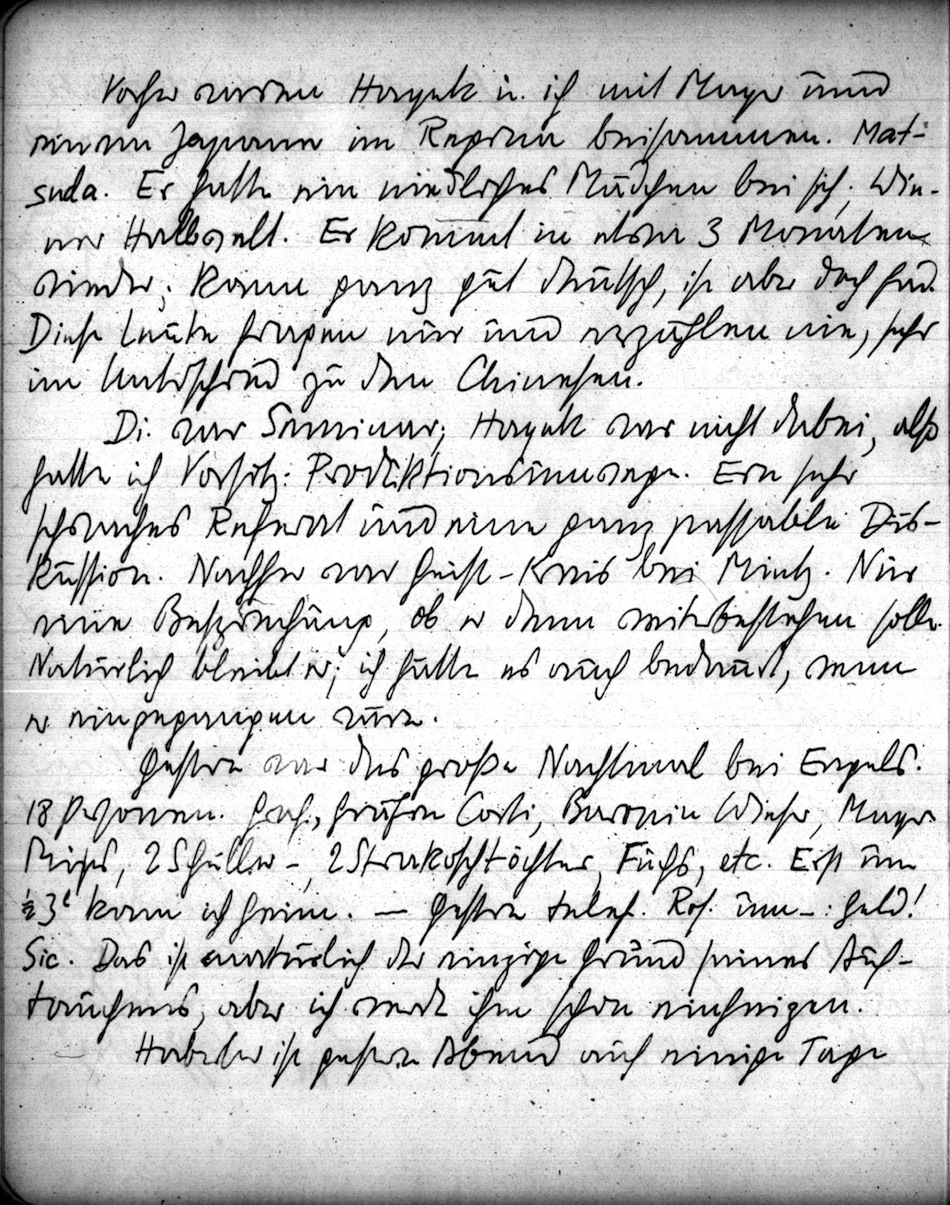 Vorher waren Hayek u. ich mit Mayer und
einem Japaner im Regina beisammen. Mat-
suda. Er hatte ein niedliches Mädchen bei sich; Wie-
ner Halbwelt. Er kommt in etwa 3 Monaten
wieder; kann ganz gut deutsch, ist aber doch fad.
Diese Leute fragen nur und erzählen nie, sehr
im Unterschied zu den Chinesen.
Di. war Seminar; Hayek war nicht dabei, also
hatte ich Vorsitz: Produktionsumwege. Ein sehr
schwaches Referat und eine ganz passable Dis-
kussion. Nachher war Geist-Kreis bei Mintz. Nur
eine Besprechung, ob er denn weiterbestehen solle.
Natürlich bleibt er; ich hätte es auch bedauert, wenn
er eingegangen wäre.
Gestern war das große Nachtmal bei Engels.
18 Personen. Graf, Gräfin Corti, Baronin Wieser, Mayer
Mises, 2 Schüller-, 2 Strakoschtöchter, Fuchs, etc. Erst um
½3ʰ kam ich heim. — Gestern telef. Ros. um –: Geld!
Sic. Das ist natürlich der einzige Grund seines Auf-
tauchens, aber ich werde ihm schon einheizen.
Haberler ist gestern Abend auf einige Tage